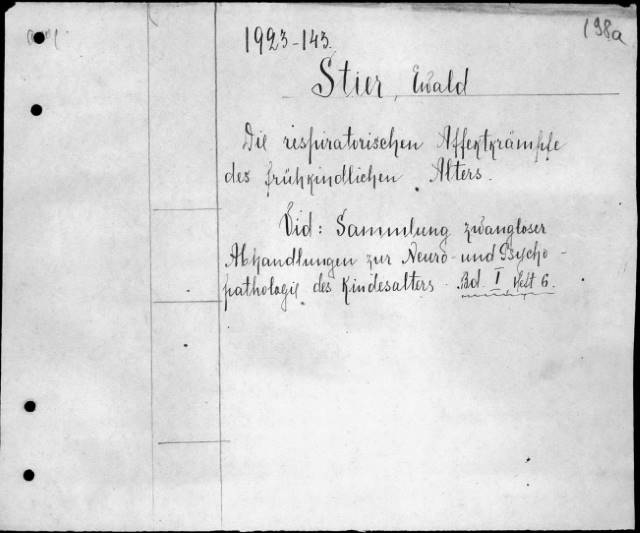 198a
1923-143.
Stier, Ewald
Die respiratorischen Affektkrämpfe
des frühkindlichen Alters.
Vid: Sammlung zwangloser
Abhandlungen zur Neuro- und Psycho-
pathologie des Kindesalters. Bd. I Heft 6.